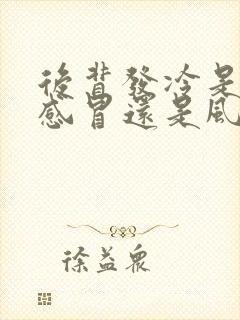 後背發冷是
感冒還是風
徐益眾